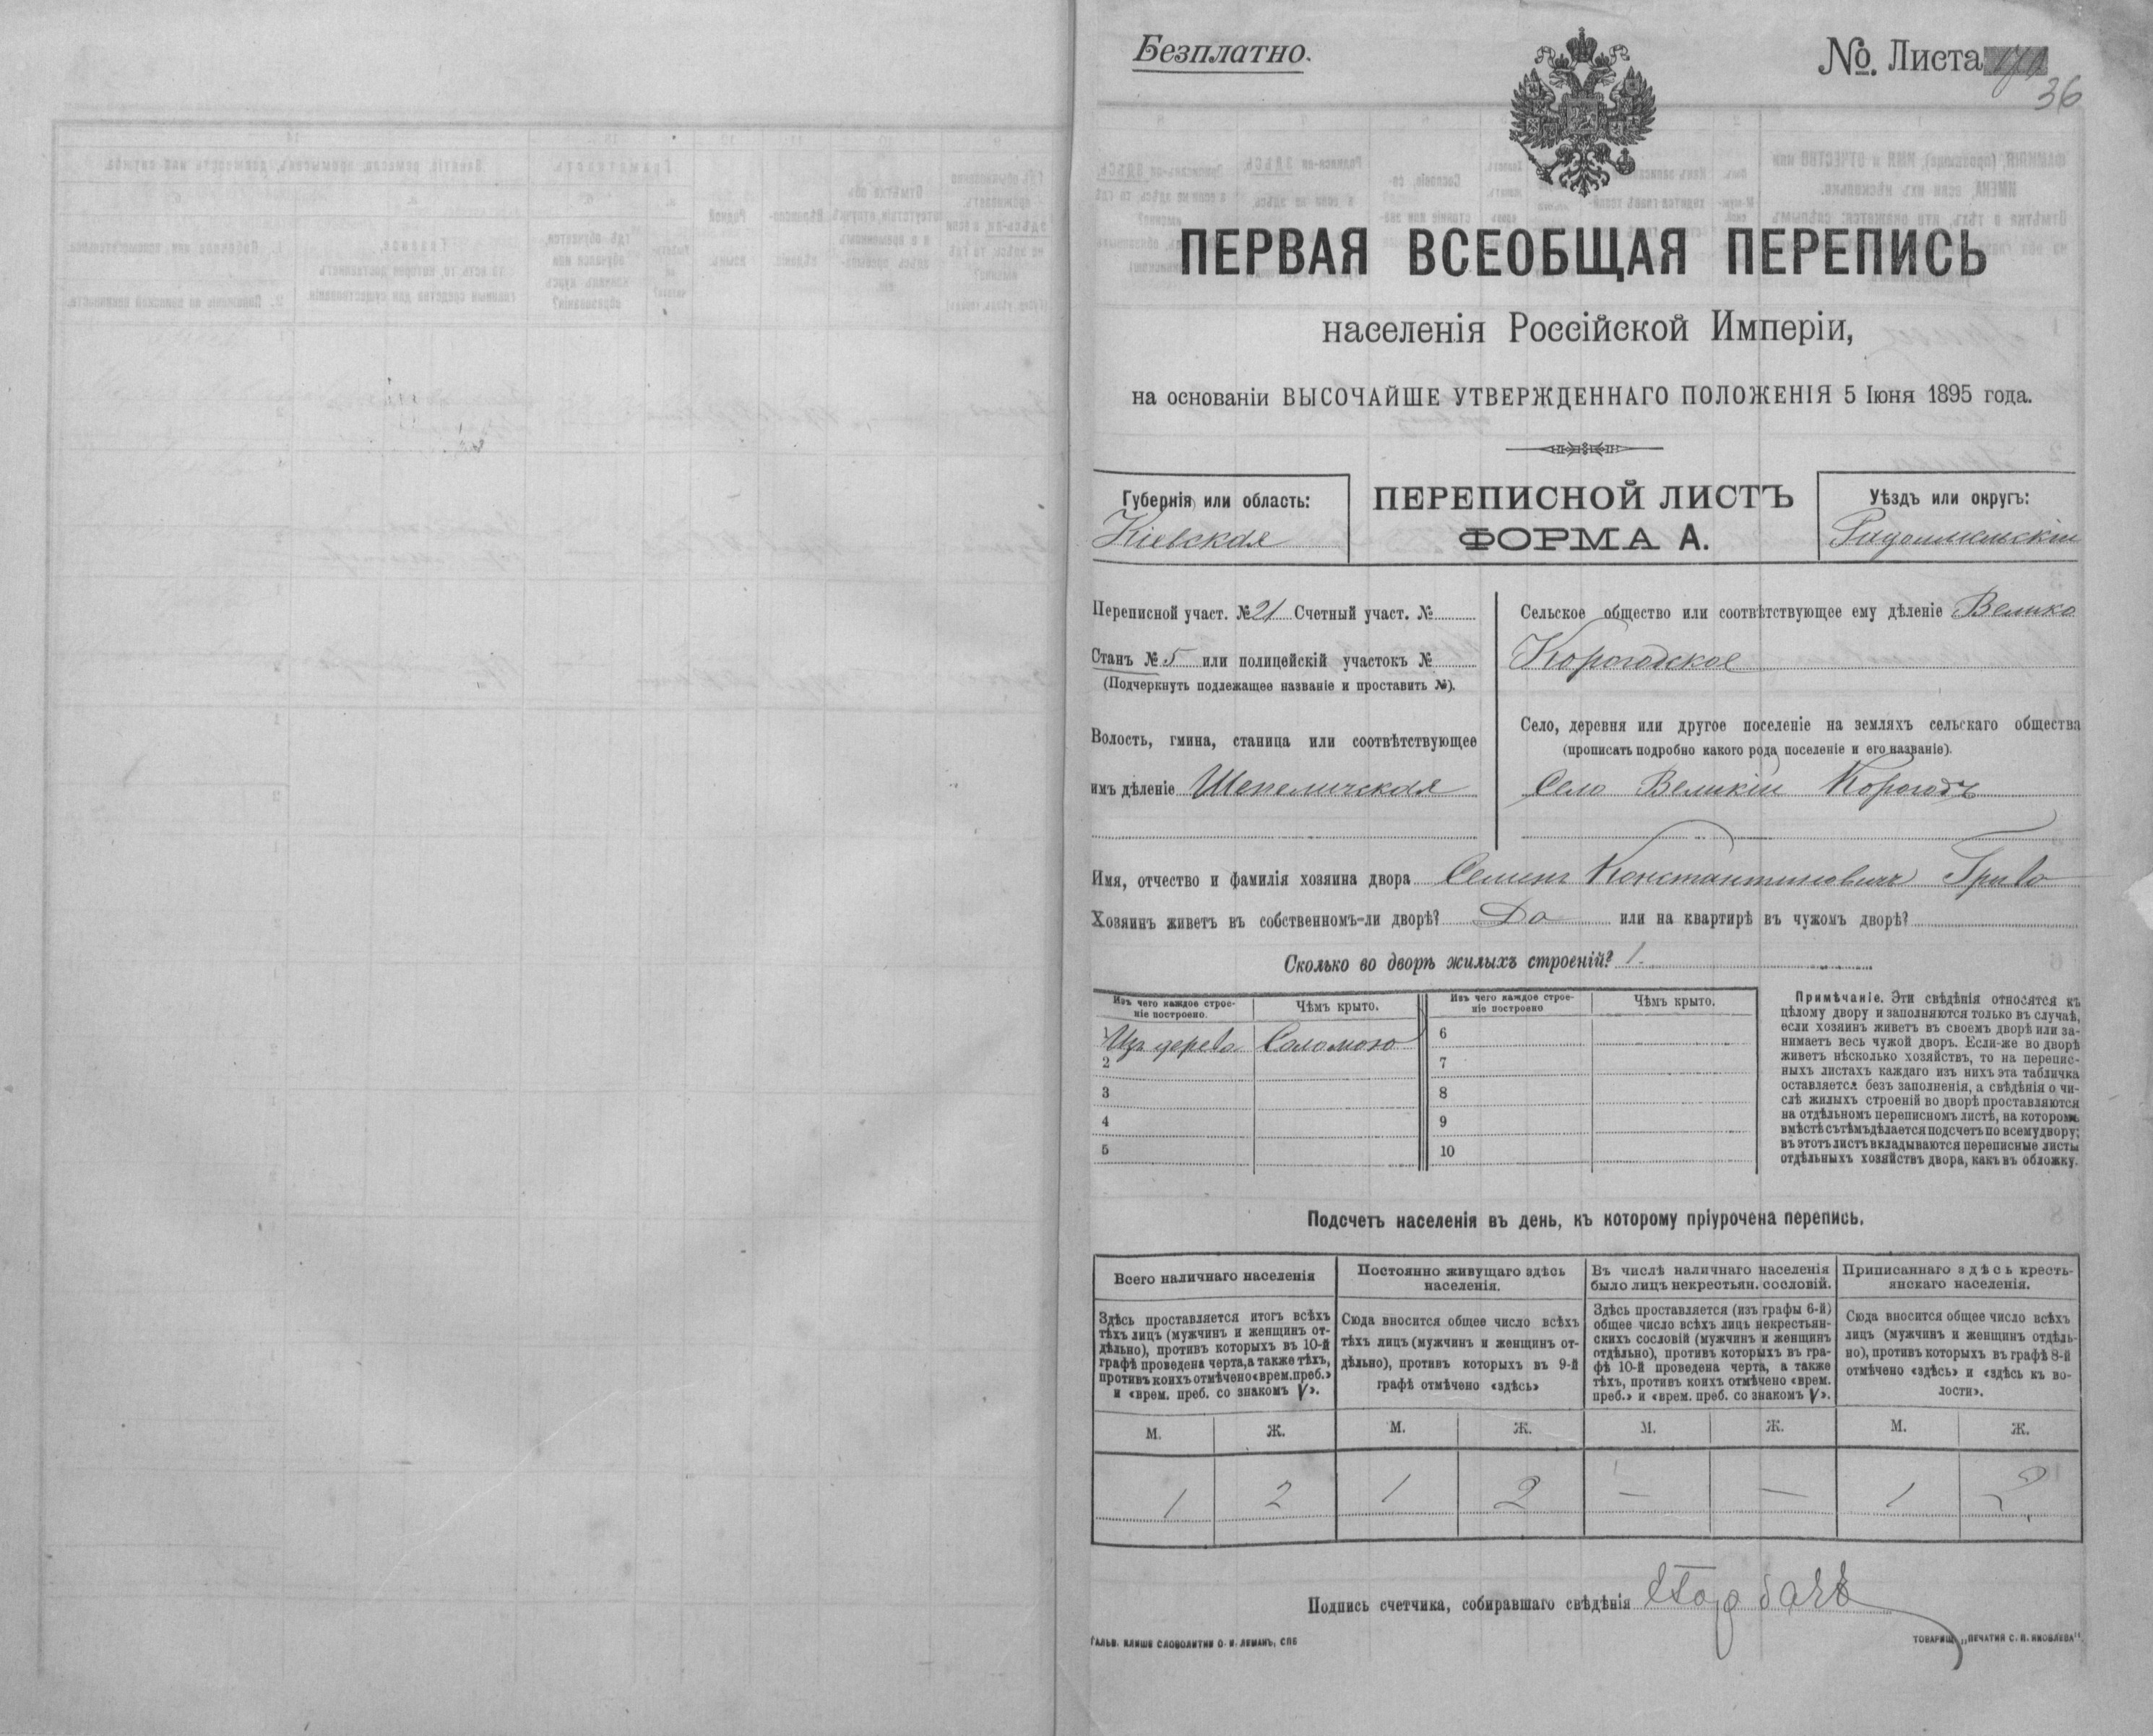 Безплатно.
№. Листа
36
ПЕРВАЯ ВСЕОБЩАЯ ПЕРЕПИСЬ
населенія Россійской Имперіи,
на основаніи ВЫСОЧАЙШЕ УТВЕРЖДЕННАГО ПОЛОЖЕНІЯ 5 Іюня 1895 года.
Губернія или область:
Кіевская
ПЕРЕПИСНОЙ ЛИСТЪ
ФОРМА А.
Уѣздъ или округъ:
Радомысльскій
Переписной участ. № 21 Счетный участ. №
Станъ № 5 или полицейскій участокъ №
(Подчеркнуть подлежащее названіе и проставить №).
Волость, гмина, станица или соотвѣтствующее
имъ дѣленіе Шепеличская
Сельское общество или соотвѣтствующее ему дѣленіе Велико
Корогодское
Село, деревня или другое поселеніе на земляхъ сельскаго общества
(прописать подробно какого рода поселеніе и его названіе).
Село Великій Корогодъ
Имя, отчество и фамилія хозяина двора Семенъ Константиновичъ Грива
Хозяинъ живетъ въ собственномъ-ли дворѣ? Да или на квартирѣ въ чужомъ дворѣ?
Сколько во дворѣ жилыхъ строеній? 1.
Изъ чего каждое строе-
ніе построено.
Чѣмъ крыто.
Изъ чего каждое строе-
ніе построено
Чѣмъ крыто.
1 Изъ дерева Соломою 6
2 7
3 8
4 9
5 10
Примѣчаніе. Эти свѣдѣнія относятся къ
цѣлому двору и заполняются только въ случаѣ,
если хозяинъ живетъ въ своемъ дворѣ или за-
нимаетъ весь чужой дворъ. Если-же во дворѣ
живетъ нѣсколько хозяйствъ, то на перепис-
ныхъ листахъ каждаго изъ нихъ эта табличка
оставляется безъ заполненія, а свѣдѣнія о чи-
слѣ жилыхъ строеній во дворѣ проставляются
на отдѣльномъ переписномъ листѣ, на которомъ
вмѣстѣ съ тѣмъ дѣлается подсчетъ по всему двору;
въ этотъ листъ вкладываются переписные листы
отдѣльныхъ хозяйствъ двора, какъ въ обложку.
Подсчетъ населенія въ день, къ которому пріурочена перепись.
Всего наличнаго населенія
Здѣсь проставляется итогъ всѣхъ
тѣхъ лицъ (мужчинъ и женщинъ от-
дѣльно), противъ которыхъ въ 10-й
графѣ проведена черта, а также тѣхъ,
противъ коихъ отмѣчено «врем. преб.»
и «врем. преб. со знакомъ V».
Постоянно живущаго здѣсь
населенія.
Сюда вносится общее число всѣхъ
тѣхъ лицъ (мужчинъ и женщинъ от-
дѣльно), противъ которыхъ въ 9-й
графѣ отмѣчено «здѣсь»
Въ числѣ наличнаго населенія
было лицъ некрестьян. сословій.
Здѣсь проставляется (изъ графы 6-й)
общее число всѣхъ лицъ некрестьян-
скихъ сословій (мужчинъ и женщинъ
отдѣльно), противъ которыхъ въ гра-
фѣ 10-й проведена черта, а также
тѣхъ, противъ коихъ отмѣчено «врем.
преб.» и «врем. преб. со знакомъ V».
Приписаннаго здѣсь кресть-
янскаго населенія.
Сюда вносится общее число всѣхъ
лицъ (мужчинъ и женщинъ отдѣль-
но), противъ которыхъ въ графѣ 8-й
отмѣчено «здѣсь» и «здѣсь къ во-
лости».
М. Ж. М. Ж. М. Ж. М. Ж.
1 2 1 2 — — 1 2
Подпись счетчика, собиравшаго свѣдѣнія
ГАЛЬВ. КЛИШЕ СЛОВОЛИТНИ О. И. ЛЕМАНЪ, СПБ
ТОВАРИЩ. „ПЕЧАТНЯ С. П. ЯКОВЛЕВА".